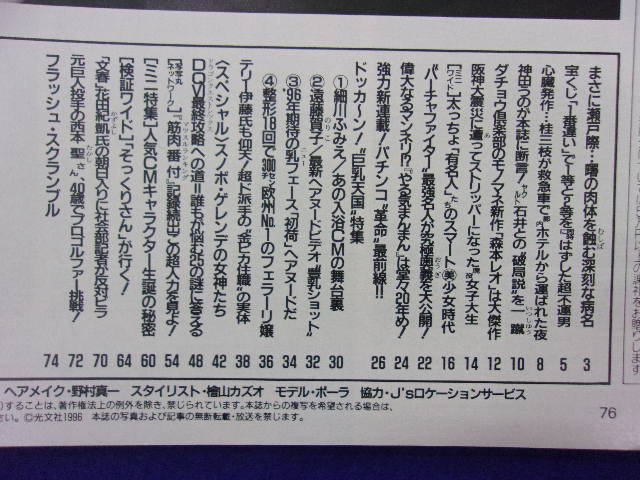 まさに瀬戸際…曙の肉体を蝕む深刻な病名 3
宝くじ「一番違い」で1等と2等をはずした超不運男 5
心臓発作…桂三枝が救急車で都内ホテルから運ばれた夜 8
神田うのが本誌に断言!石井との「破局説」を一蹴 10
ダチョウ倶楽部のモノマネ新作「森本レオ」は大傑作 12
阪神大震災に遭ってストリッパーになった現役女子大生 14
[ミニワイド]太っちょ「有名人」たちのスマート美少女時代 16
“バーチャファイター”最強名人が究極奥義を大公開! 22
偉大なるマンネリ!?「やる気まんまん」は堂々20年め! 24
強力新連載!パチンコ“革命”最前線!! 26
ドッカ〜ンッ!“巨乳天国”特集
①細川ふみえ/あの入浴CMの舞台裏 30
②遠藤貴子/最新ヘアヌードビデオ“艶乳ショット” 32
③'96年期待の乳フェース「初荷」ヘアヌードだ 34
④整形18回で300㌢欧州No.1のフェラーリ嬢 36
テリー伊藤氏も仰天!超ド派手の“金ピカ住職”の実体 38
〈スペシャルンスノボ・ゲレンデの女神たち 42
DQⅥ最終攻略への道=誰もが悩む25の謎に答える 48
[写真丸ネットワーク]『筋肉番付』記録続出この超人力を見よ! 54
[ミニ特集]人気CMキャラクター生誕の秘密 60
[検証ワイド]「そっくりさん」が行く! 64
「文春」花田紀凱氏の朝日入りに社会部記者が反対ビラ 70
元巨人投手の西本聖さん40歳でプロゴルファー挑戦! 72
フラッシュ・スクランブル 74
ヘアメイク・野村真一 スタイリスト・檜山カズオ モデル・ポーラ 協力・J'sロケーションサービス
)することは、著作権法上の例外を除き、禁じられています。本誌からの複写を希望される場合は、
さい。©光文社1996 本誌の写真および記事の無断転載・放送を禁じます。
76